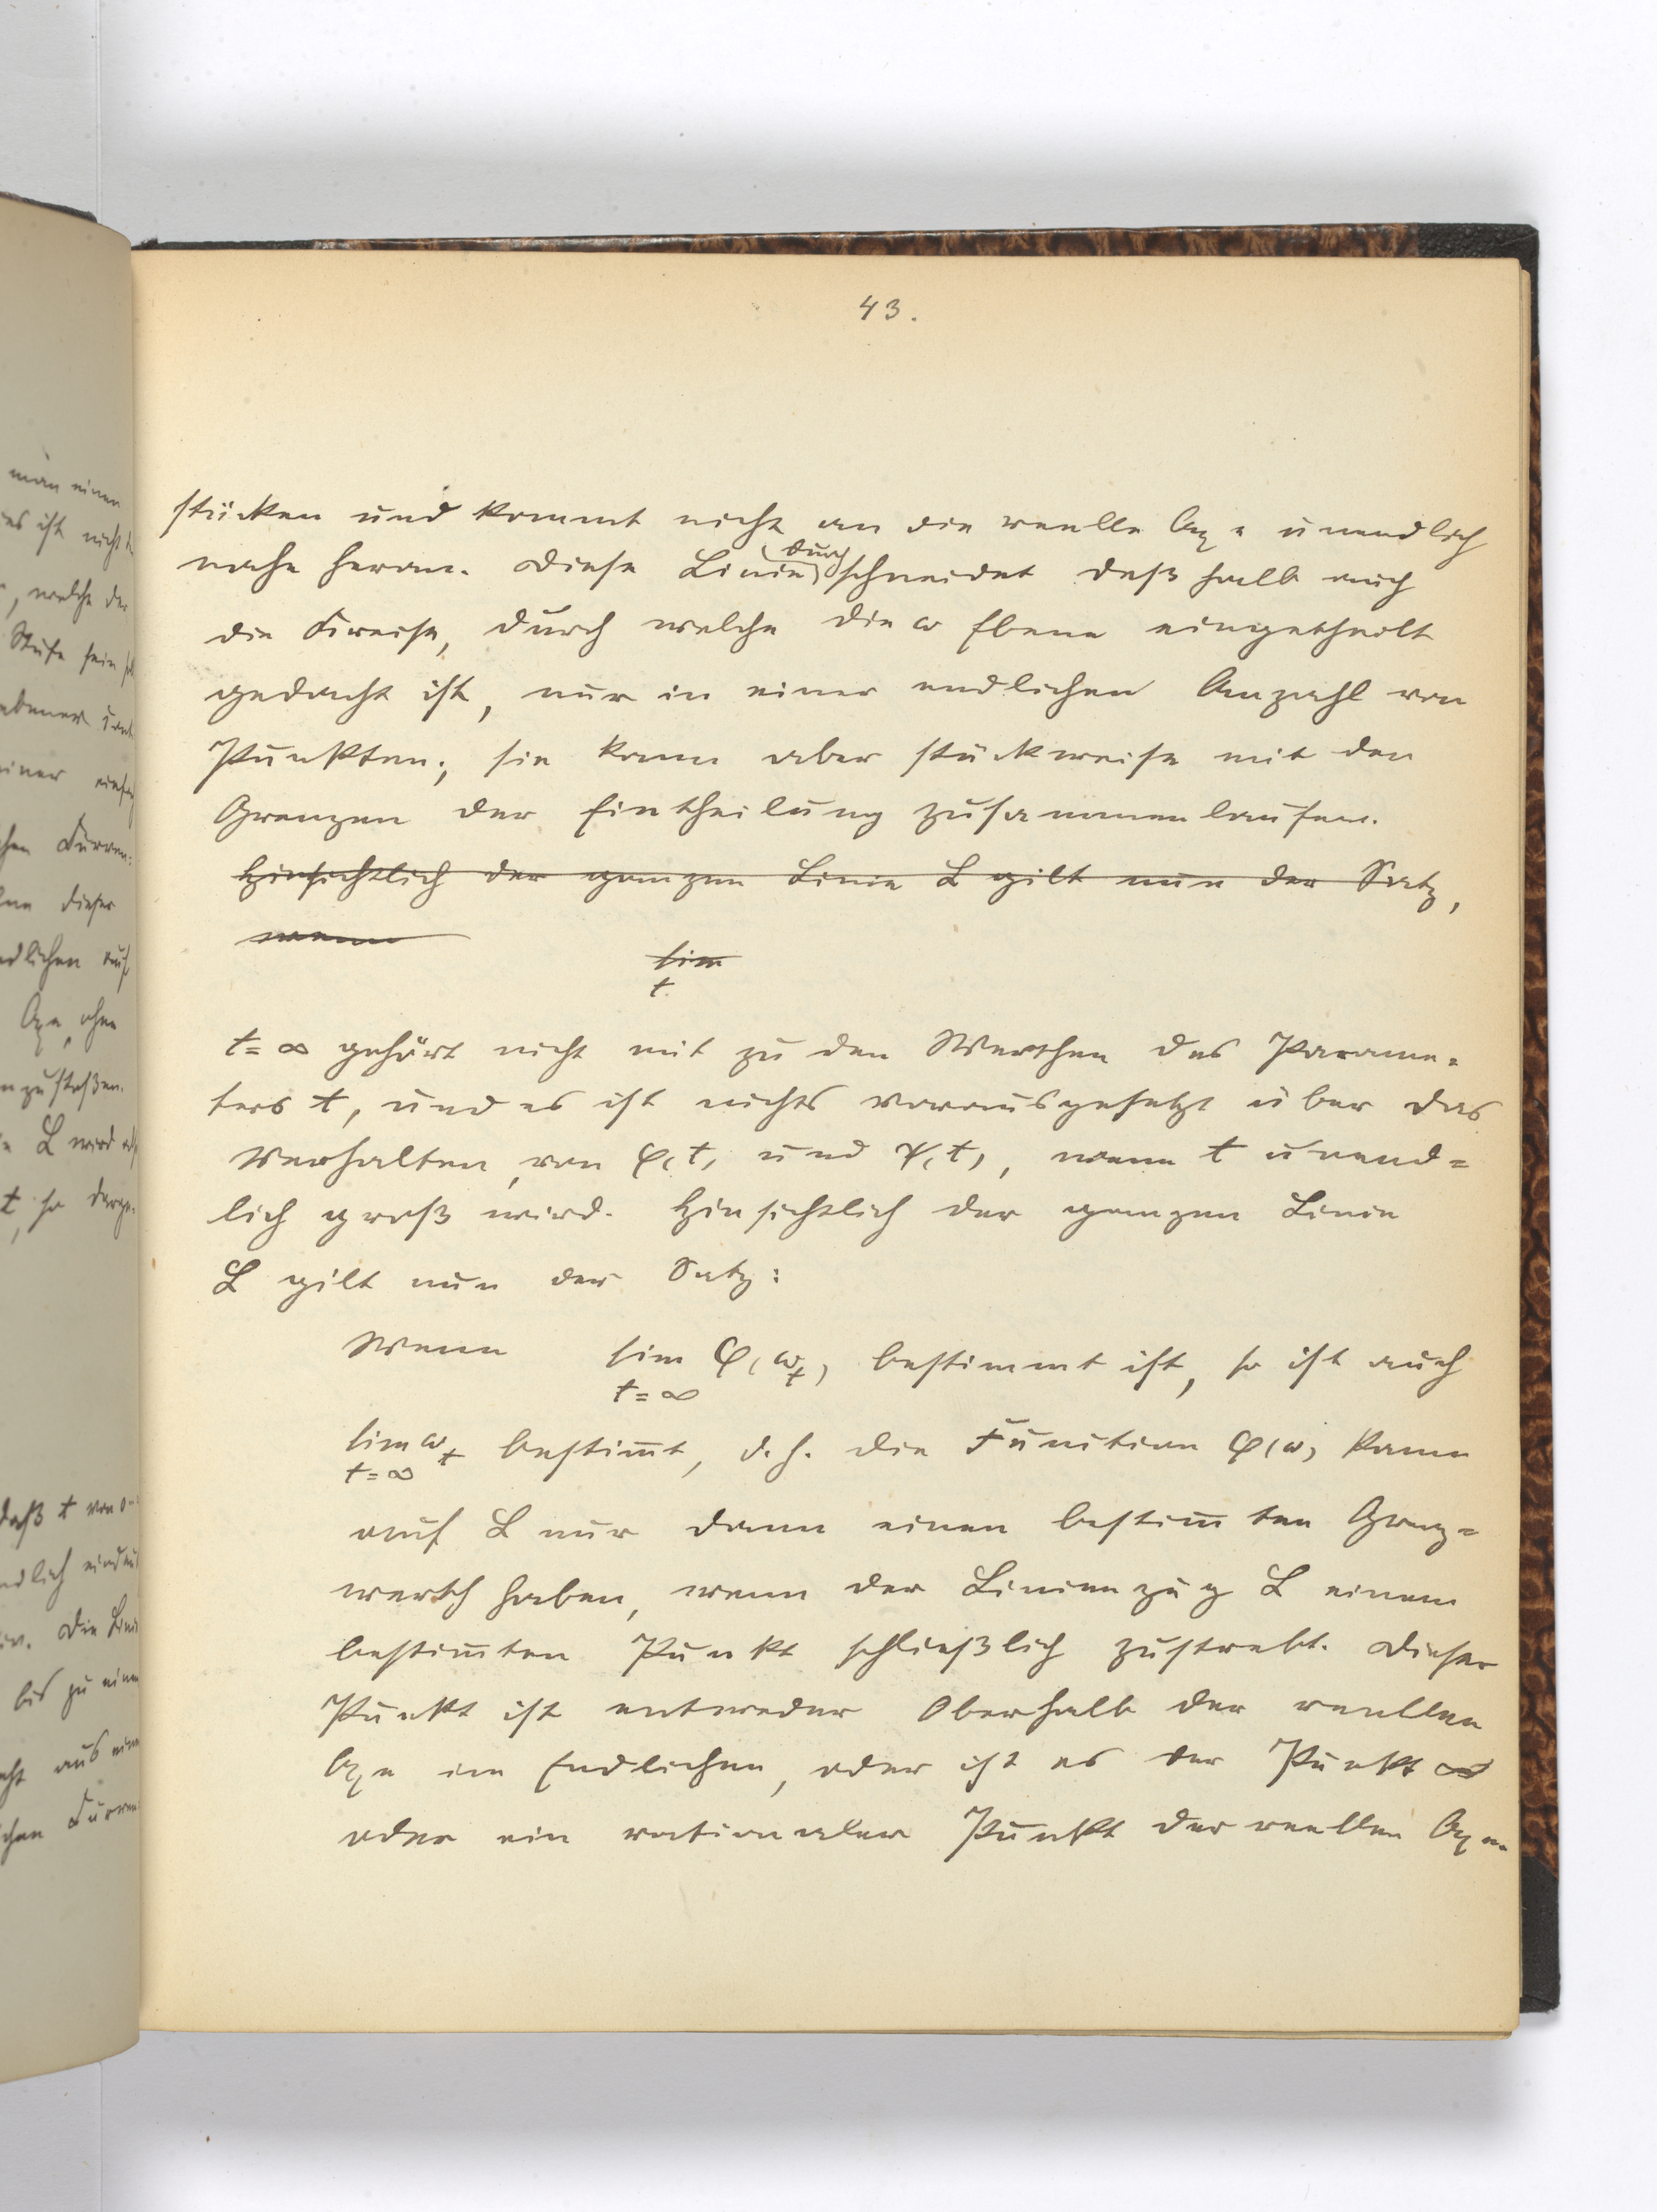 43.
stücken und kommt nicht an die reelle Axe unendlich
nahe heran. Diese Linie durchschneidet deßhalb auch
die Kreise, durch welche die ω Ebene eingetheilt
gedacht ist, nur in einer endlichen Anzahl von
Punkten; sie kann aber stückweise mit den
Grenzen der Eintheilung zusammenlaufen.
Hinsichtlich der ganzen Linie L gilt nun der Satz,
wenn
lim
t
t=∞ gehört nicht mit zu den Werthen des Parame=
ters t, und es ist nichts vorausgesetzt über das
Verhalten von φ(t) und ψ(t), wenn t unend=
lich groß wird. Hinsichtlich der ganzen Linie
L gilt nun der Satz:
Wenn lim φ(ω_t) bestimmt ist, so ist auch
t=∞
lim ω_t bestim̅t, d. h. die Function φ(ω) kann
t=∞
auf L nur dann einen bestim̅ten Grenz=
werth haben, wenn der Linienzug L einem
bestim̅ten Punkt schließlich zustrebt. Dieser
Punkt ist entweder Oberhalb der reellen
Axe im Endlichen, oder ist es der Punkt ∞
oder ein rationaler Punkt der reellen Axe.
man einen
es ist nicht
, welche der
Stufe sein
einer
dieser
endlichen
Axe, ohne
anzustoßen.
L wird
t, so
daß t von 0
endlich
Die Linie
bis zu einem
aus einer